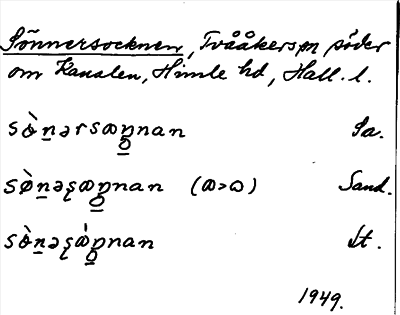 Sönnersocknen, Tvååkers sn söder
om Kanalen, Himle hd, Hall. l.
sò̵nərsaŋnan Sa.
sø̀nəʂaŋnan (ɷ>ɷ) Sand.
sò̵nəʂàŋnan St.
1949.